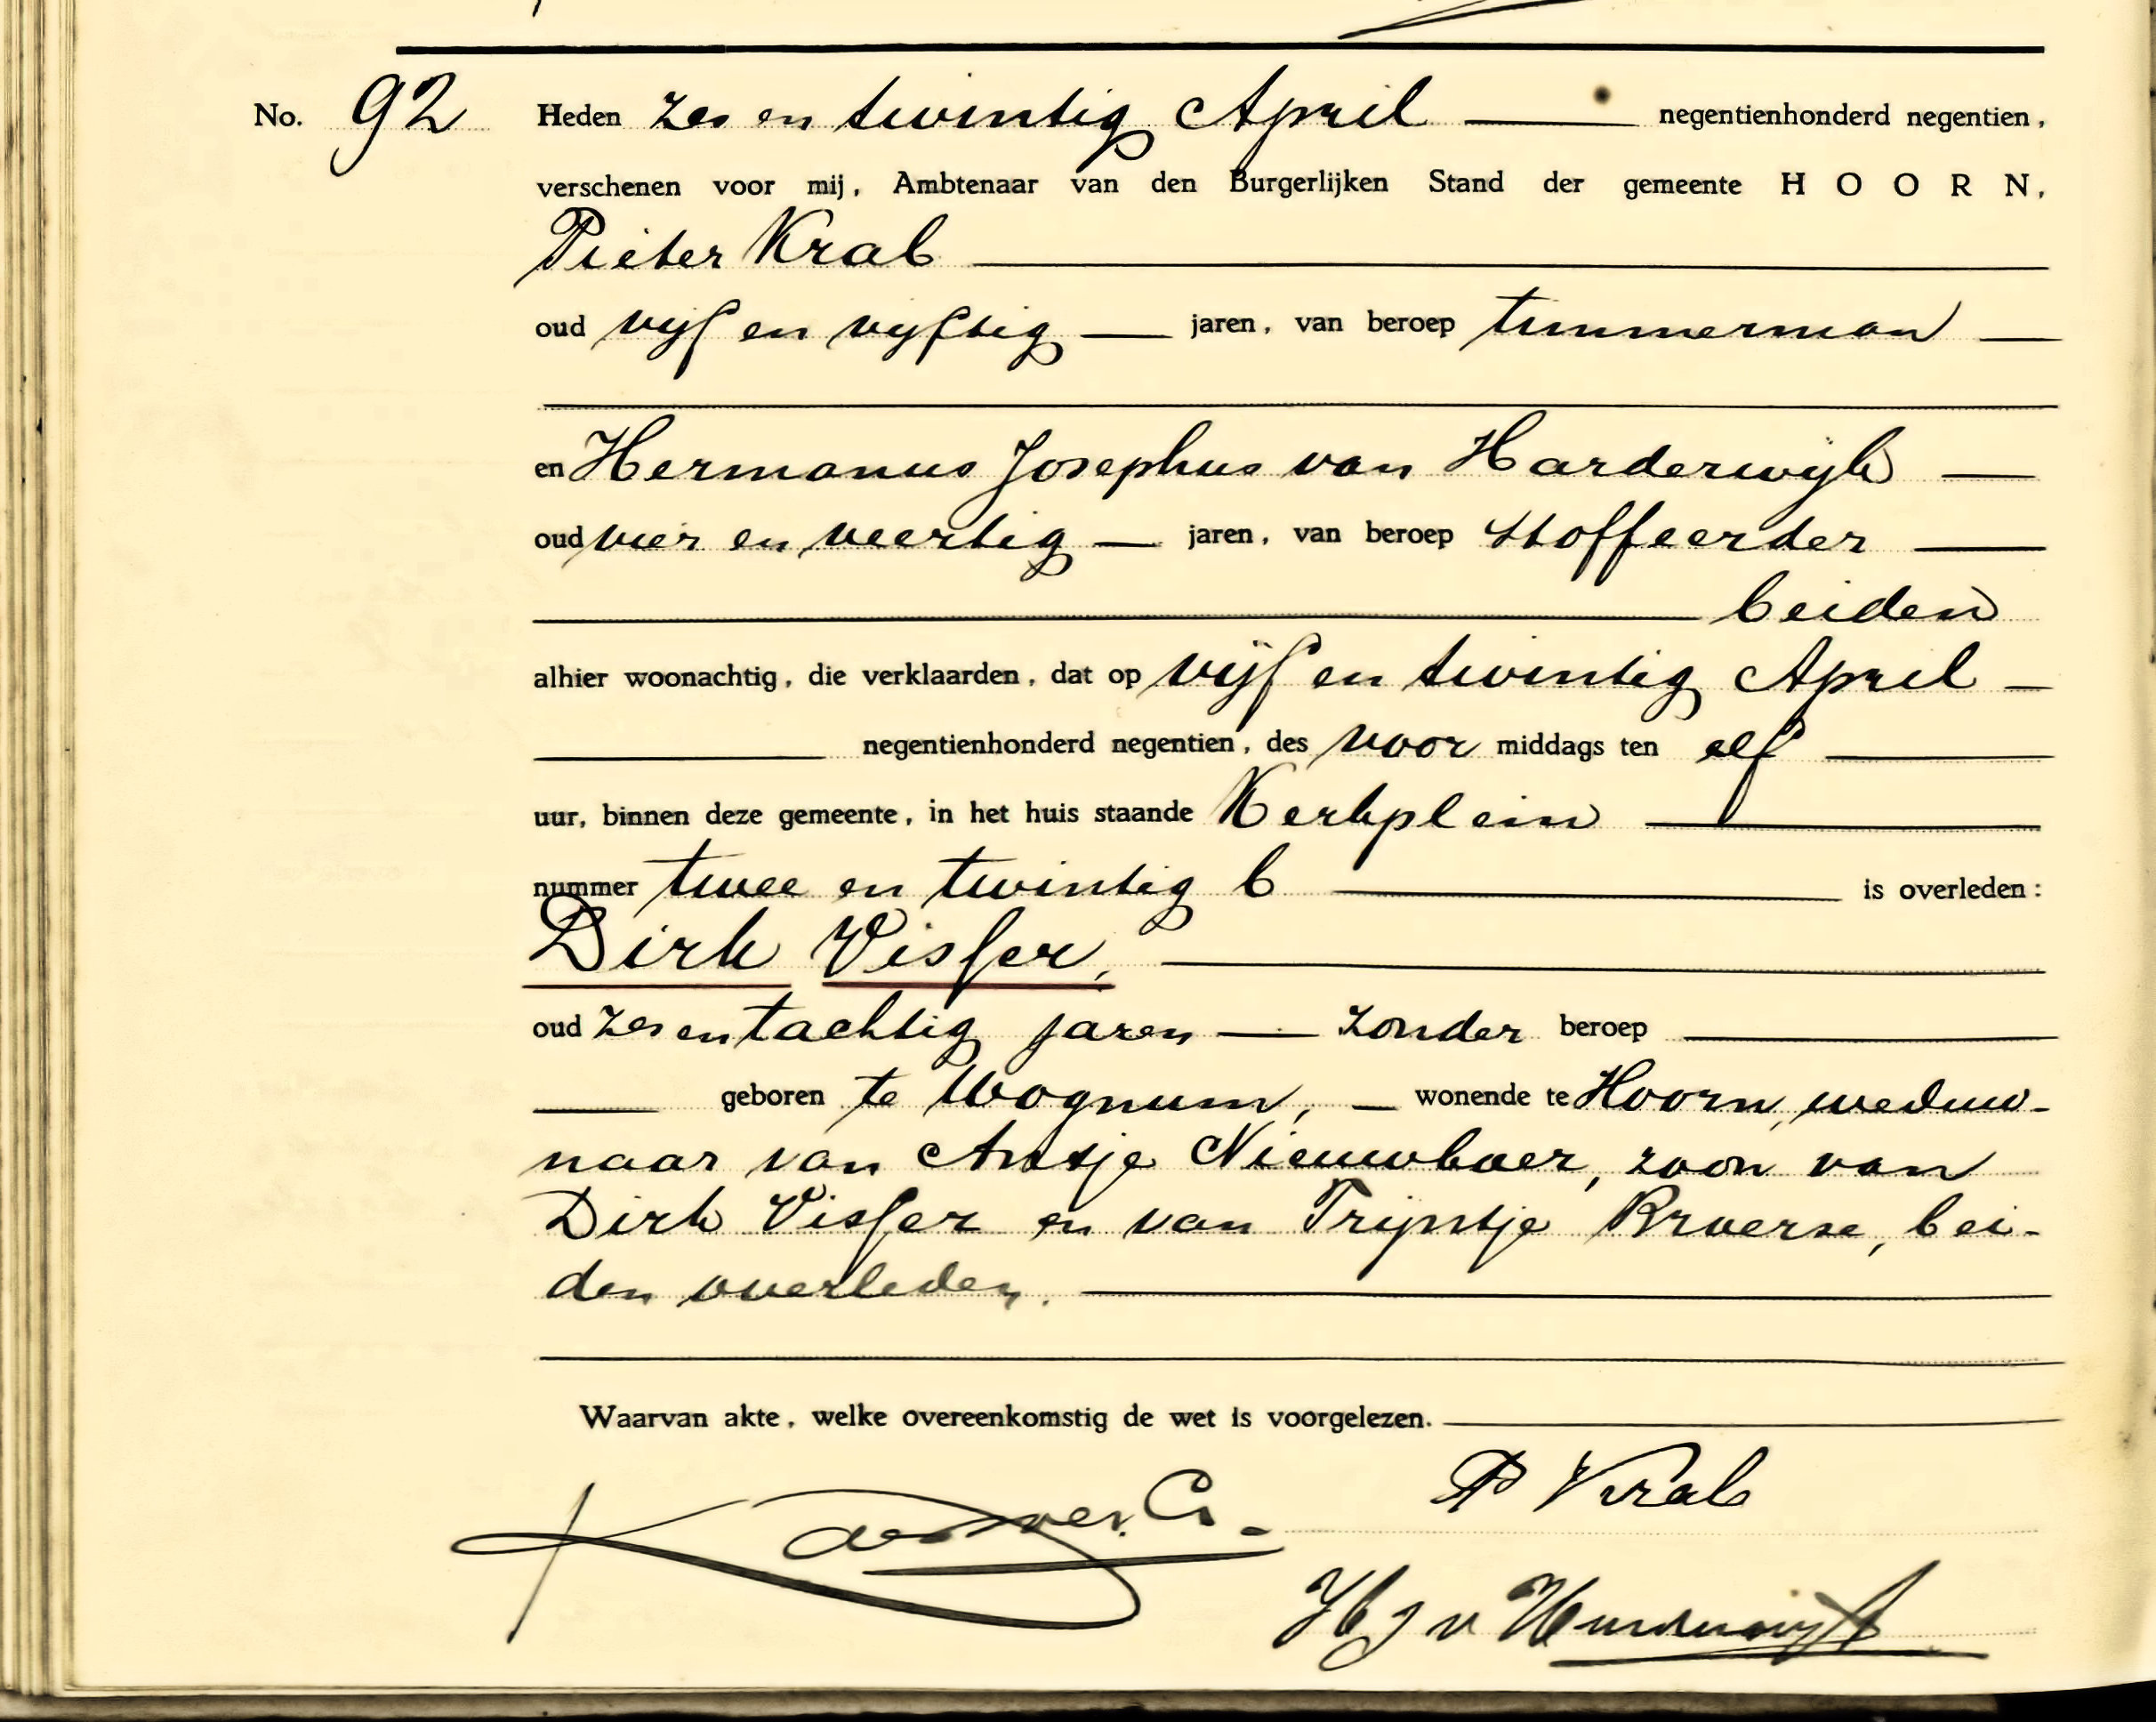 No. 92 Heden zes en twintig April negentienhonderd negentien,
verschenen voor mij, Ambtenaar van den Burgerlijken Stand der gemeente HOORN,
Pieter Krab
oud vijf en vijftig jaren, van beroep timmerman
en Hermanus Josephus van Harderwijk
oud vier en veertig jaren, van beroep stoffeerder
beiden
alhier woonachtig, die verklaarden, dat op vijf en twintig April
negentienhonderd negentien, des voor middags ten elf
uur, binnen deze gemeente, in het huis staande Kerkplein
nummer twee en twintig b is overleden:
Dirk Visser,
oud zes en tachtig jaren zonder beroep
geboren te Wognum, wonende te Hoorn, weduw-
naar van Antje Nieuwboer, zoon van
Dirk Visser en van Trijntje Broerse, bei-
den overleden.
Waarvan akte, welke overeenkomstig de wet is voorgelezen.
P Krab
H J v Harderwijk